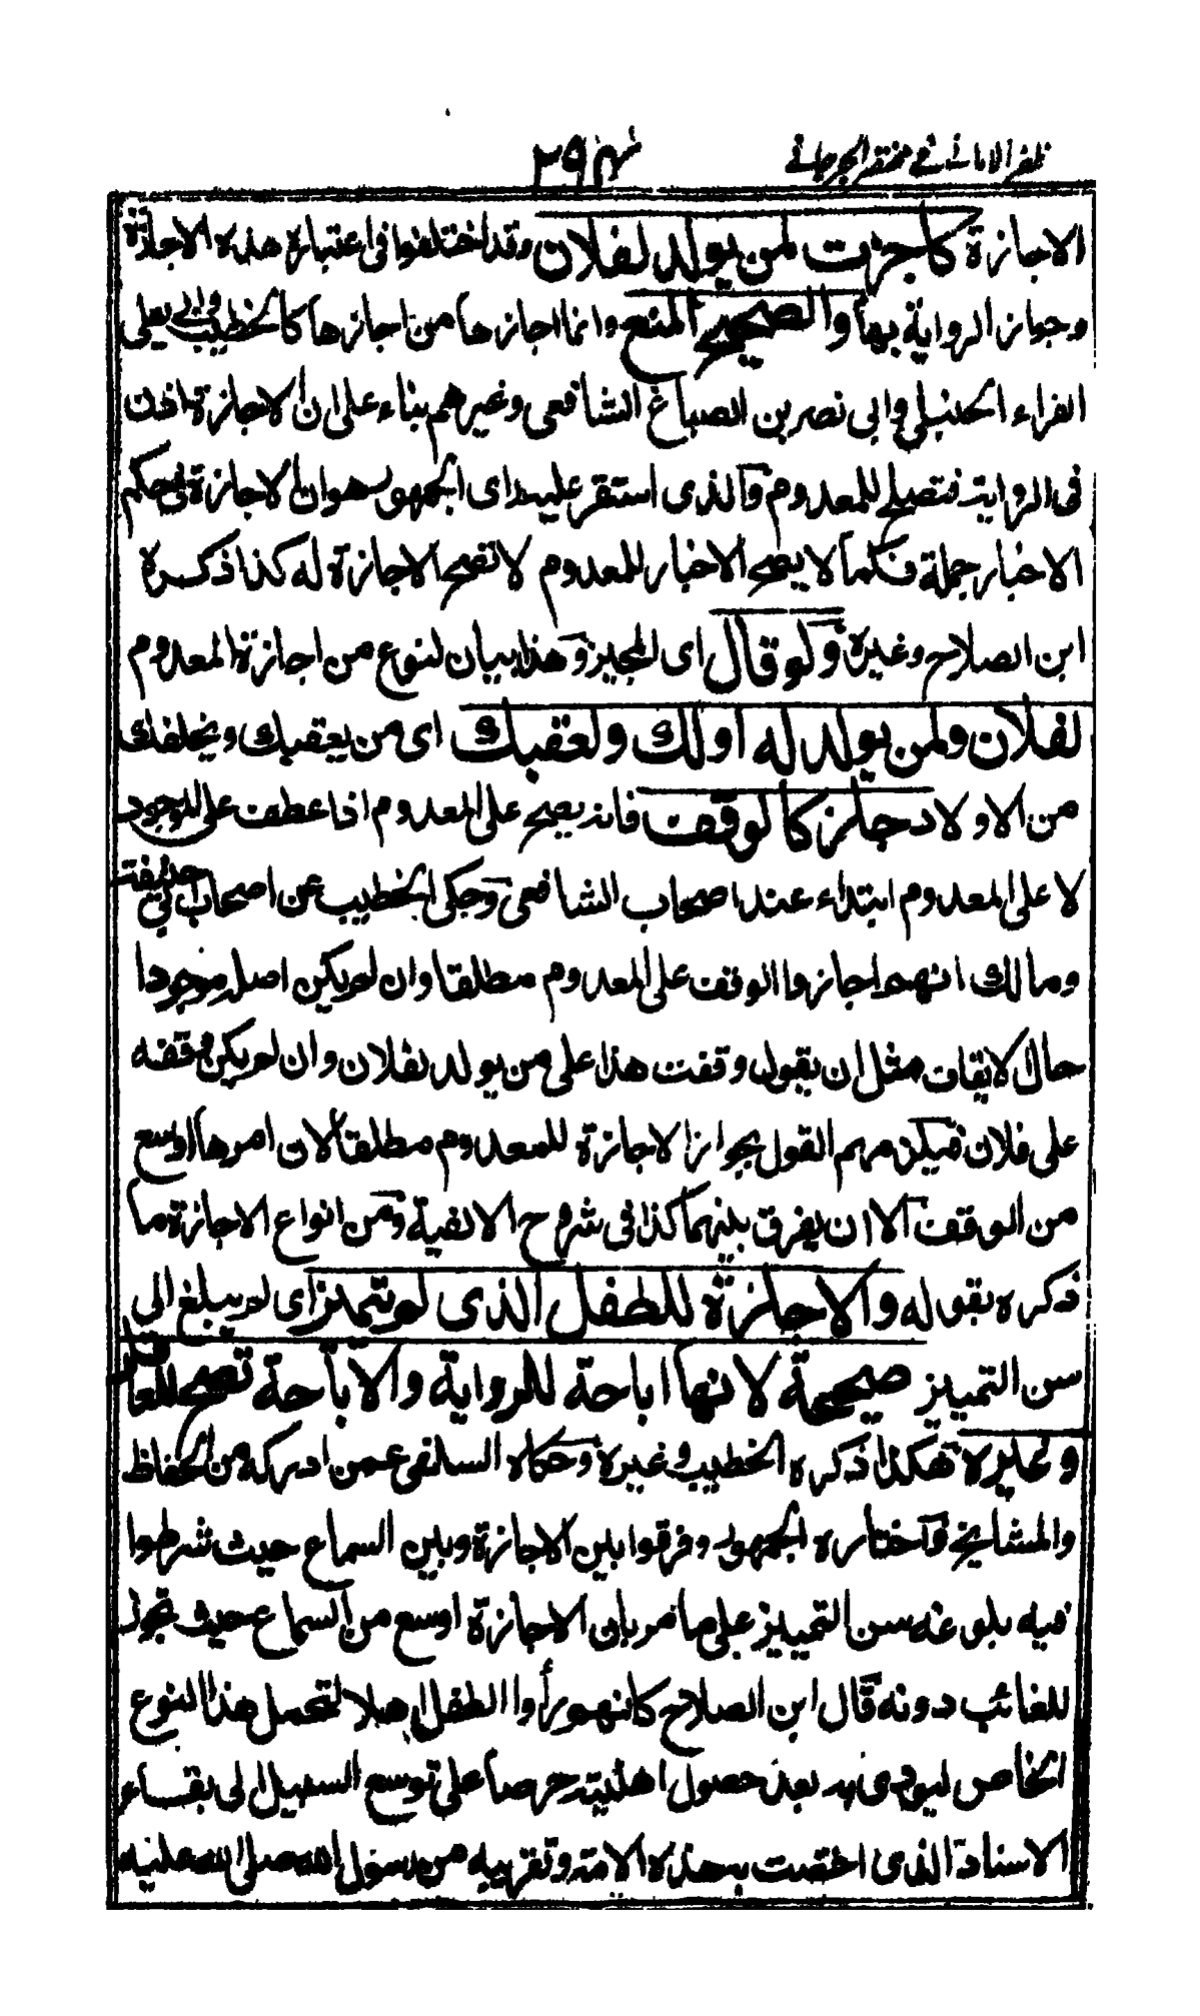 ظفر الامانی فی مختصر الجرجانی
الاجازة كاجزت لمن يولد لفلان وقد اختلفوا فى اعتبارة هذه الاجازة
وجواز الرواية بها والصحيح المنع وانما اجازها من اجازها كالخطيب وابى يعلى
الفراء الحنبلى وابى نصر بن الصباغ الشافعى وغيرهم بناء على ان الاجازة اذن
فى الرواية فتصلح للمعدوم والذى استقر عليه راى الجمهور هو ان الاجازة فى حكم
الاخبار جملة فكما لا يصح الاخبار للمعدوم لا تصح الاجازة له كذا ذكره
ابن الصلاح وغيره ولو قال اى المجيز وهذا بيان لنوع من اجازة المعدوم
لفلان ولمن يولد له او لك ولعقبك اى من يعقبك ويخلفك
من الاولاد جاز كالوقف فانه يصح على المعدوم اذا عطف على الموجود
لا على المعدوم ابتداء عند اصحاب الشافعى وحكى الخطيب عن اصحاب ابى حنيفة
ومالك انهم اجازوا الوقف على المعدوم مطلقا وان لم يكن اصله موجودا
حال الايقاف مثل ان يقول وقفت هذا على من يولد لفلان وان لم يكن وقفه
على فلان فيلزمهم القول بجواز الاجازة للمعدوم مطلقا لان امرها اوسع
من الوقف الا ان يفرق بينهما كذا فى شروح الالفية ومن انواع الاجازة ما
ذكره بقوله والاجازة للطفل الذى لم يتميز اى لم يبلغ الى
سن التمييز صحيحة لانها اباحة للرواية والاباحة تصح للعاقل
وغيره هكذا ذكره الخطيب وغيره وحكاه السلفى عمن ادركه من الحفاظ
والمشايخ واختاره الجمهور وفرقوا بين الاجازة وبين السماع حيث شرطوا
فيه بلوغه سن التمييز على ما مر بان الاجازة اوسع من السماع حيث تجوز
للغائب دونه قال ابن الصلاح كانهم رأوا الطفل اهلا لتحمل هذا النوع
الخاص ليودى به بعد حصول اهليته حرصا على توسع السبيل الى بقاء
الاسناد الذى اختصت به هذه الامة وتقريبه من رسول الله صلى الله عليه